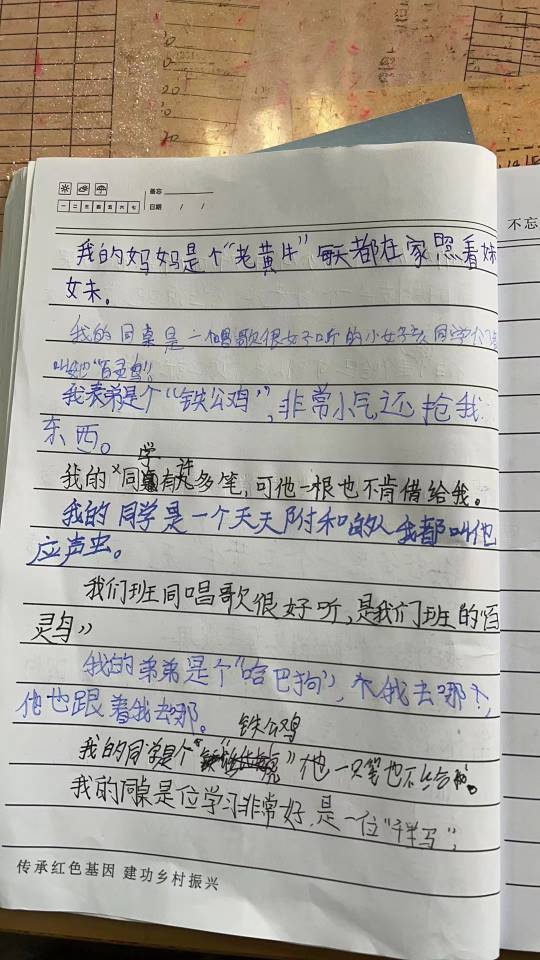 备忘
一 二 三 四 五 六 七
日期 / /
不忘
我的妈妈是个“老黄牛”每天都在家照看妹
妹。
我的同桌是一个唱歌很好听的小女孩同学们
叫她“百灵鸟”。
我表弟是个“铁公鸡”,非常小气还抢我
东西。
学 许
我的同有多笔,可他一根也不肯借给我。
我的同学是一个天天附和的人我都叫他
应声虫。
我们班同唱歌很好听,是我们班的“百
灵鸟”
我的弟弟是个“哈巴狗”,我去哪,
他也跟着我去哪。
铁公鸡
我的同学是个“”他一只笔也不给
我的同桌是位学习非常好,是一位“
传承红色基因 建功乡村振兴